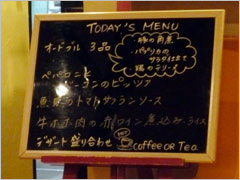 TODAY'S MENU
オードブル 3品
豚の角煮
パプリカの
サラダ仕立て
鶏のテリーヌ
ペペロンチ
ベーコンのピッツァ
魚 のトマトサフランソース
牛ホホ肉の赤ワイン煮込み ライス
デザート盛り合わせ
Coffee OR Tea.